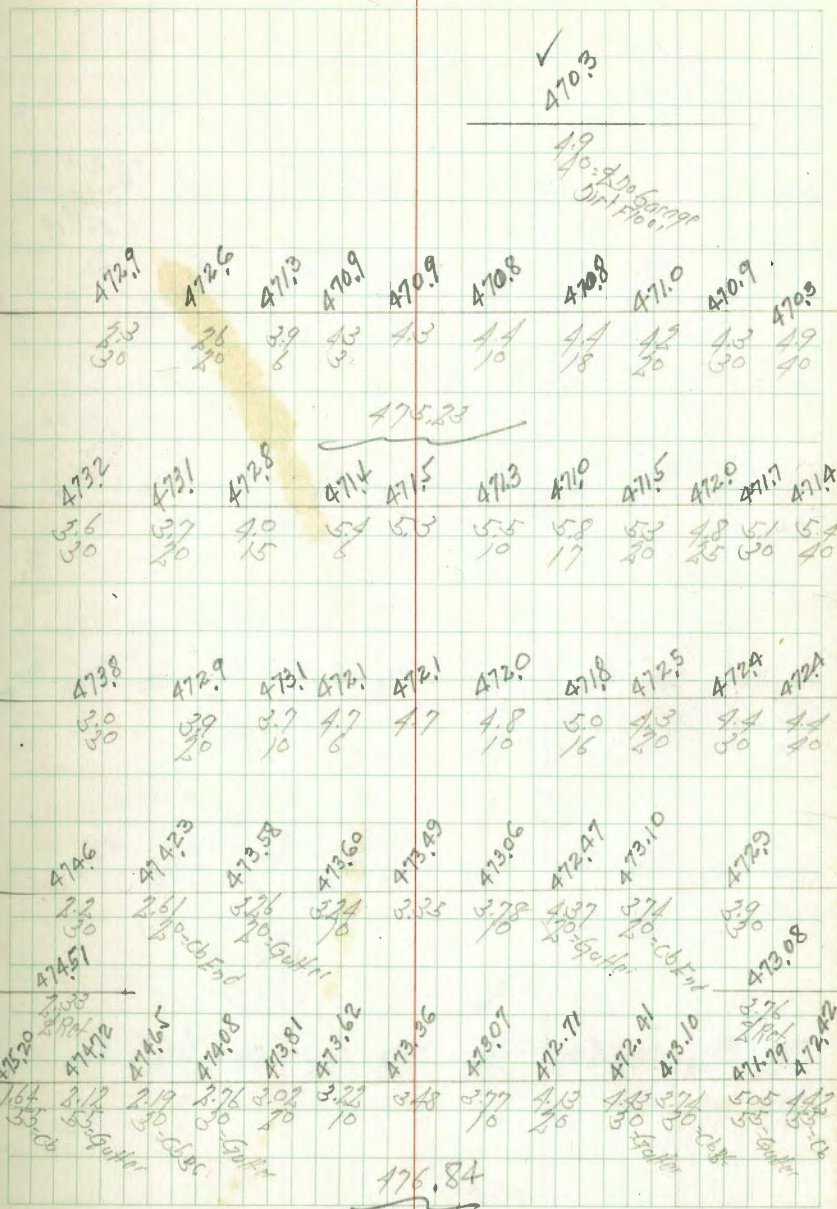 ✓
470.3
4.9
40=
Dirt Floor
472.9 472.6 471.3 470.9 470.9 470.8 470.8 471.0 470.9 470.3
2.3 2.6 3.9 4.3 4.3 4.4 4.4 4.2 4.3 4.9
30 20 6 3 10 18 20 30 40
475.23
473.2 473.1 472.8 471.4 471.5 471.3 471.0 471.5 472.0 471.7 471.4
3.6 3.7 4.0 5.4 5.3 5.5 5.8 5.3 4.8 5.1 5.4
30 20 15 6 10 17 20 25 30 40
473.8 472.9 473.1 472.1 472.1 472.0 471.8 472.5 472.4 472.4
3.0 3.9 3.7 4.7 4.7 4.8 5.0 4.3 4.4 4.4
30 20 10 6 10 16 20 30 40
474.6 474.23 473.58 473.60 473.49 473.06 472.47 473.10 472.9
2.2 2.61 3.26 3.24 3.35 3.78 4.37 3.74 3.9
30 20=Cb End 20=Gutter 10 10 20=Gutter 20=Cb End 30
474.51 473.08
2.33 3.76
475.20 474.72 474.65 474.08 473.81 473.62 473.36 473.07 472.71 472.41 473.10 471.79 472.42
1.64 2.12 2.19 2.76 3.02 3.22 3.48 3.77 4.13 4.43 3.74 5.05 4.42
55=Cb 55=Gutter 30=CbBC 30=Gutter 20 10 10 20 30=Gutter 30=CbBC 55=Gutter 55=Cb
476.84